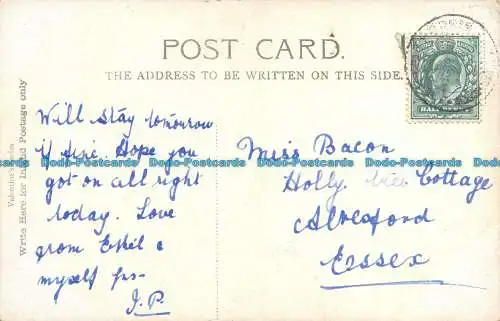 POST CARD.
THE ADDRESS TO BE WRITTEN ON THIS SIDE.
Valentine's Series
Write Here for Inland Postage only
Will stay tomorrow
if fine. Hope you
got on all right
today. Love
from Ethel &
myself
J.P.
Miss Bacon
Holly Cottage
Alresford
Essex
HALFPENNY
Dodo-Postcards Dodo-Postcards Dodo-Postcards Dodo-Postcards Dodo-Postcards